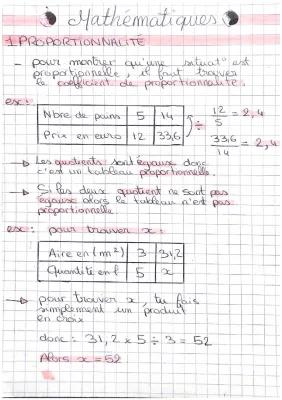 Mathématiques
1. PROPORTIONNALITÉ
- pour montrer qu'une situat° est
proportionnelle, il faut trouver
le coefficient de proportionnalité.
ex:
Nbre de pains 5 14
Prix en euro 12 33,6
÷ 12/5 = 2,4
33,6/14 = 2,4
→ Les quotients sont égaux donc
c'est un tableau proportionnelle.
→ Si les deux quotient ne sont pas
égaux alors le tableau n'est pas
proportionnelle.
ex: pour trouver x:
Aire en (m²) 3 31,2
Quantité en l 5 x
→ pour trouver x, tu fais
simplement un produit
en croix
donc: 31,2 x 5 ÷ 3 = 52
Alors x = 52